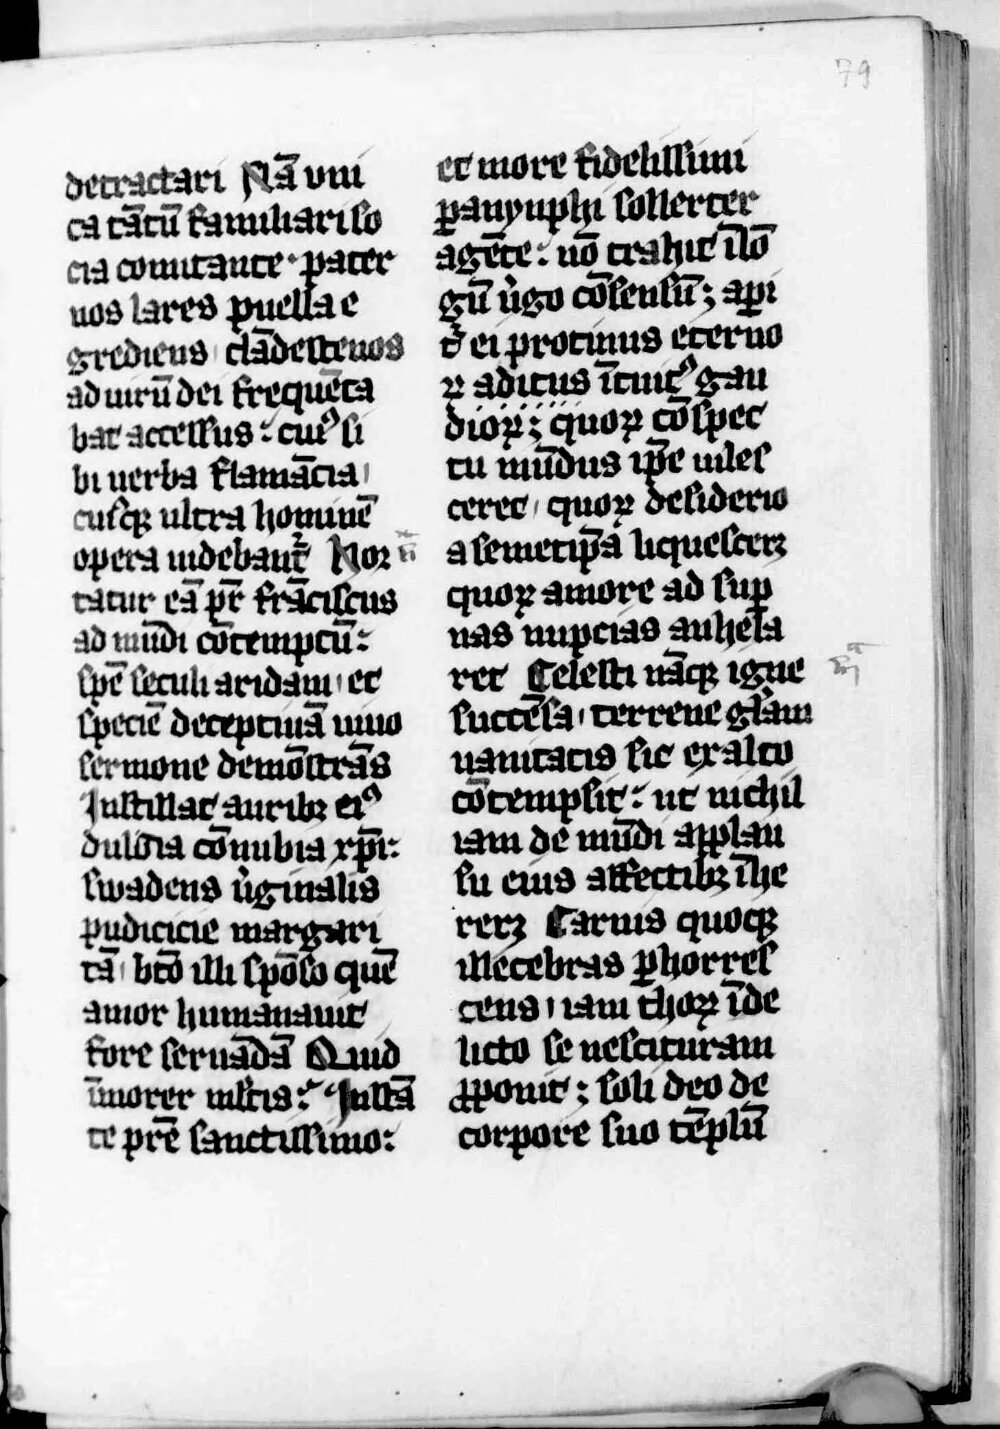 79
detractari Nā vni
ca tātū familiari so
cia comitante · pater
nos lares puella e
grediens clādestenos
ad uirū dei frequēta
bat accessus : cuiꝰ si
bi uerba flamācia
cusꝗ ultra hominē
opera uidebant᷑ Nor
tatur eā pr̄ frāciscus
ad mūdi cōtemptū :
spē seculi aridam et
speciē deceptiuā uiuo
sermone demōstrās
Instillat auribꝫ eiꝰ
dulcia cōnubia xp̄i :
swadens ūginalis
pudicicie margari
tā bt̄o illi spōso quē
amor humanauit
fore seruādā Quid
īmorer ml̄tis : Instā
te prē sanctissimo :
et more fidelissimi
ꝑanymphi sollerter
agēte : nō trahit īlō
gū ūgo cōsensū ; apͥ
t᷑ ei protinus eterno
ꝝ aditus ītuitꝰ gau
dioꝝ ; quoꝝ cōspec
tu mūdus ip̄e uiles
ceret quoꝝ desiderio
a semetip̄a liquescerꝫ
quoꝝ amore ad suꝑ
nas nupcias anhela
ret Celesti nāꝗ igne
succēsa terrene gl̄am
uanitatis sic ex alto
cōtempsit : ut nichil
iam de mūdi applau
su eius affectibꝫ īhe
rerꝫ Carnis quoꝗ
illecebras ꝑhorres
cens iam thoꝝ īde
licto se nescituram
ꝓponit ; soli deo de
corpore suo tēplū